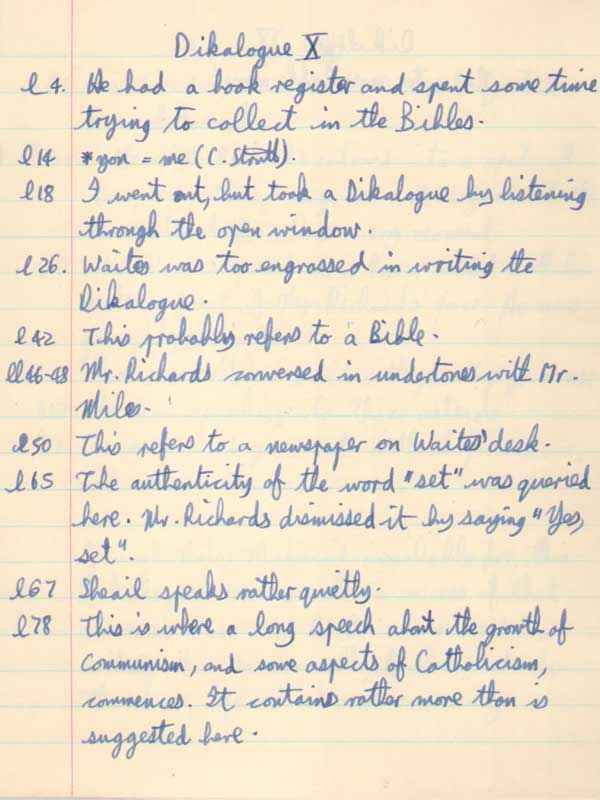 Dikalogue X
l 4. He had a book register and spent some time
trying to collect in the Bibles.
l14 *you = me (C. Struth).
l18 I went out, but took a Dikalogue by listening
through the open window.
l26. Waites was too engrossed in writing the
Dikalogue.
l42 This probably refers to a Bible.
ll46-48 Mr. Richards conversed in undertones with Mr.
Miles.
l50 This refers to a newspaper on Waites' desk.
l65 The authenticity of the word "set" was queried
here. Mr. Richards dismissed it by saying "Yes,
set".
l67 Sheail speaks rather quietly.
l78 This is where a long speech about the growth of
Communism, and some aspects of Catholicism,
commences. It contains rather more than is
suggested here.